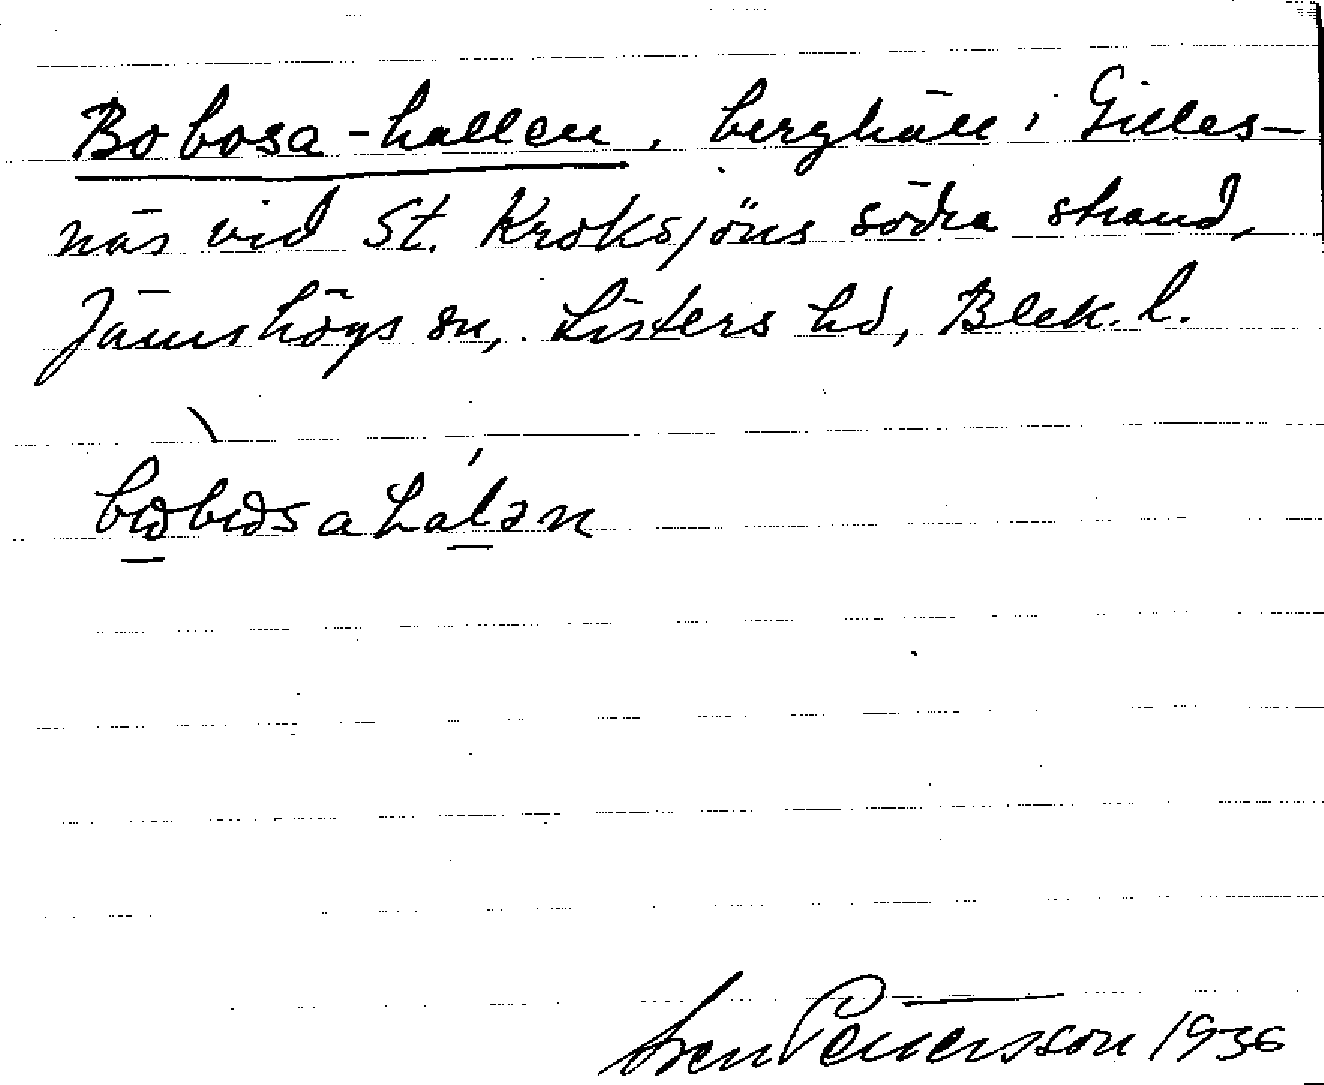 Bobosa-hallen, berghäll i Gilles-
näs vid St. Kroksjöns södra strand,
Jämshögs sn, Listers hd, Blek. l.
Sven Pettersson 1936